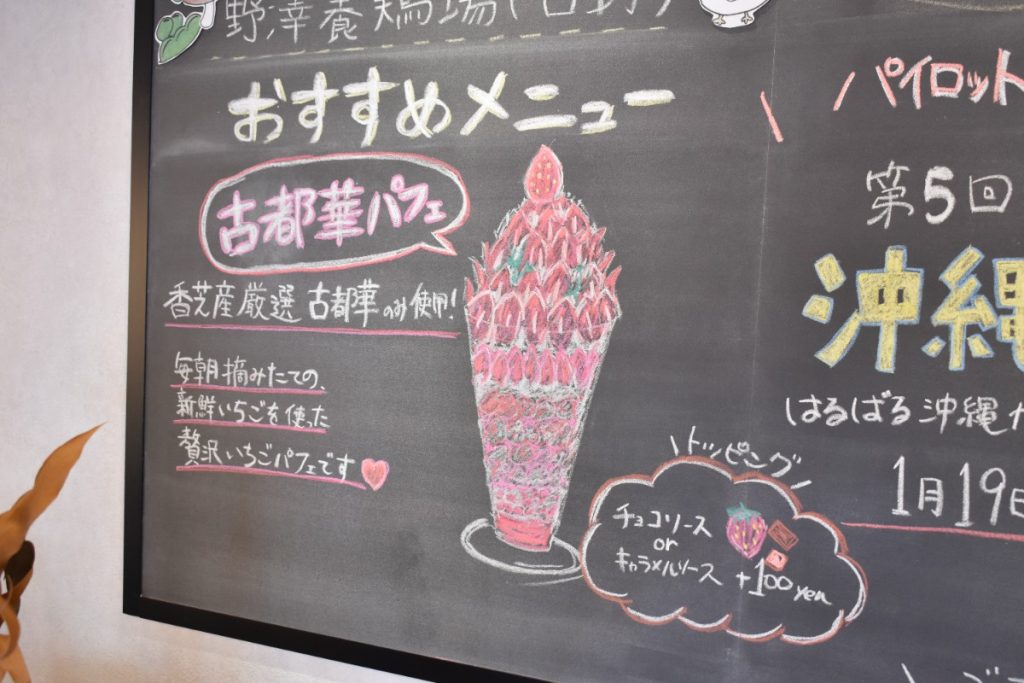 野澤養鶏場(吉野)
おすすめメニュー
古都華パフェ
香芝産厳選 古都華のみ使用!
毎朝摘みたての、
新鮮いちごを使った
贅沢いちごパフェです
トッピング
チョコソース
or
キャラメルソース +100yen
パイロット
第5回
沖縄
はるばる沖縄
1月19日